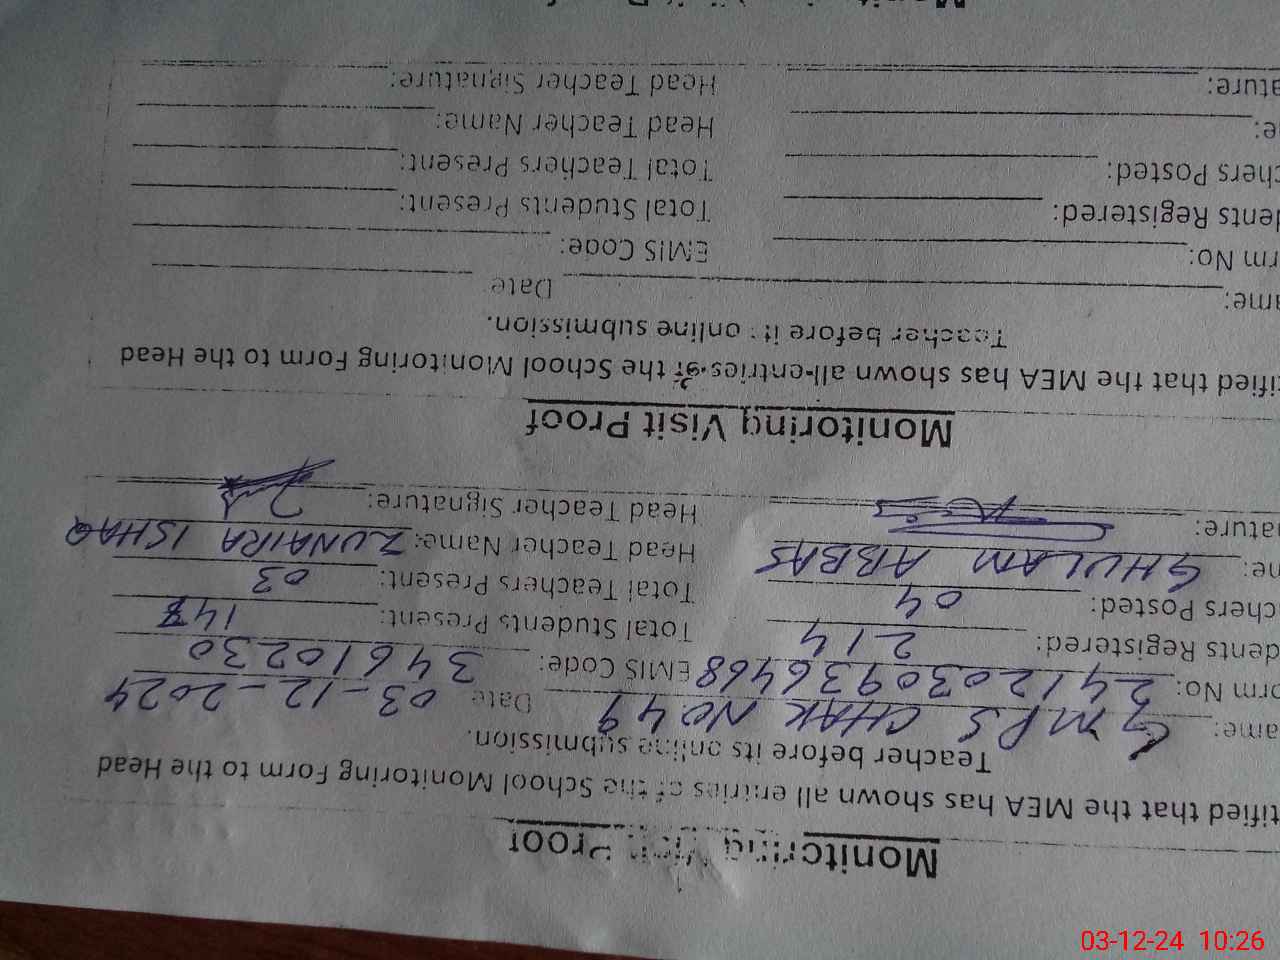 Monitoring Visit Proof
tified that the MEA has shown all entries of the School Monitoring Form to the Head
Teacher before its online submission.
ame: GMPS CHAK NO.49 Date 03-12-2024
orm No: 2412030936468 EMIS Code: 34610230
dents Registered: 214 Total Students Present: 147
chers Posted: 04 Total Teachers Present: 03
ne: GHULAM ABBAS Head Teacher Name: ZUNAIRA ISHAQ
nature: Head Teacher Signature:
Monitoring Visit Proof
tified that the MEA has shown all entries of the School Monitoring Form to the Head
Teacher before its online submission.
ame: Date
rm No: EMIS Code:
dents Registered: Total Students Present:
chers Posted: Total Teachers Present:
e: Head Teacher Name:
ature: Head Teacher Signature:
03-12-24 10:26